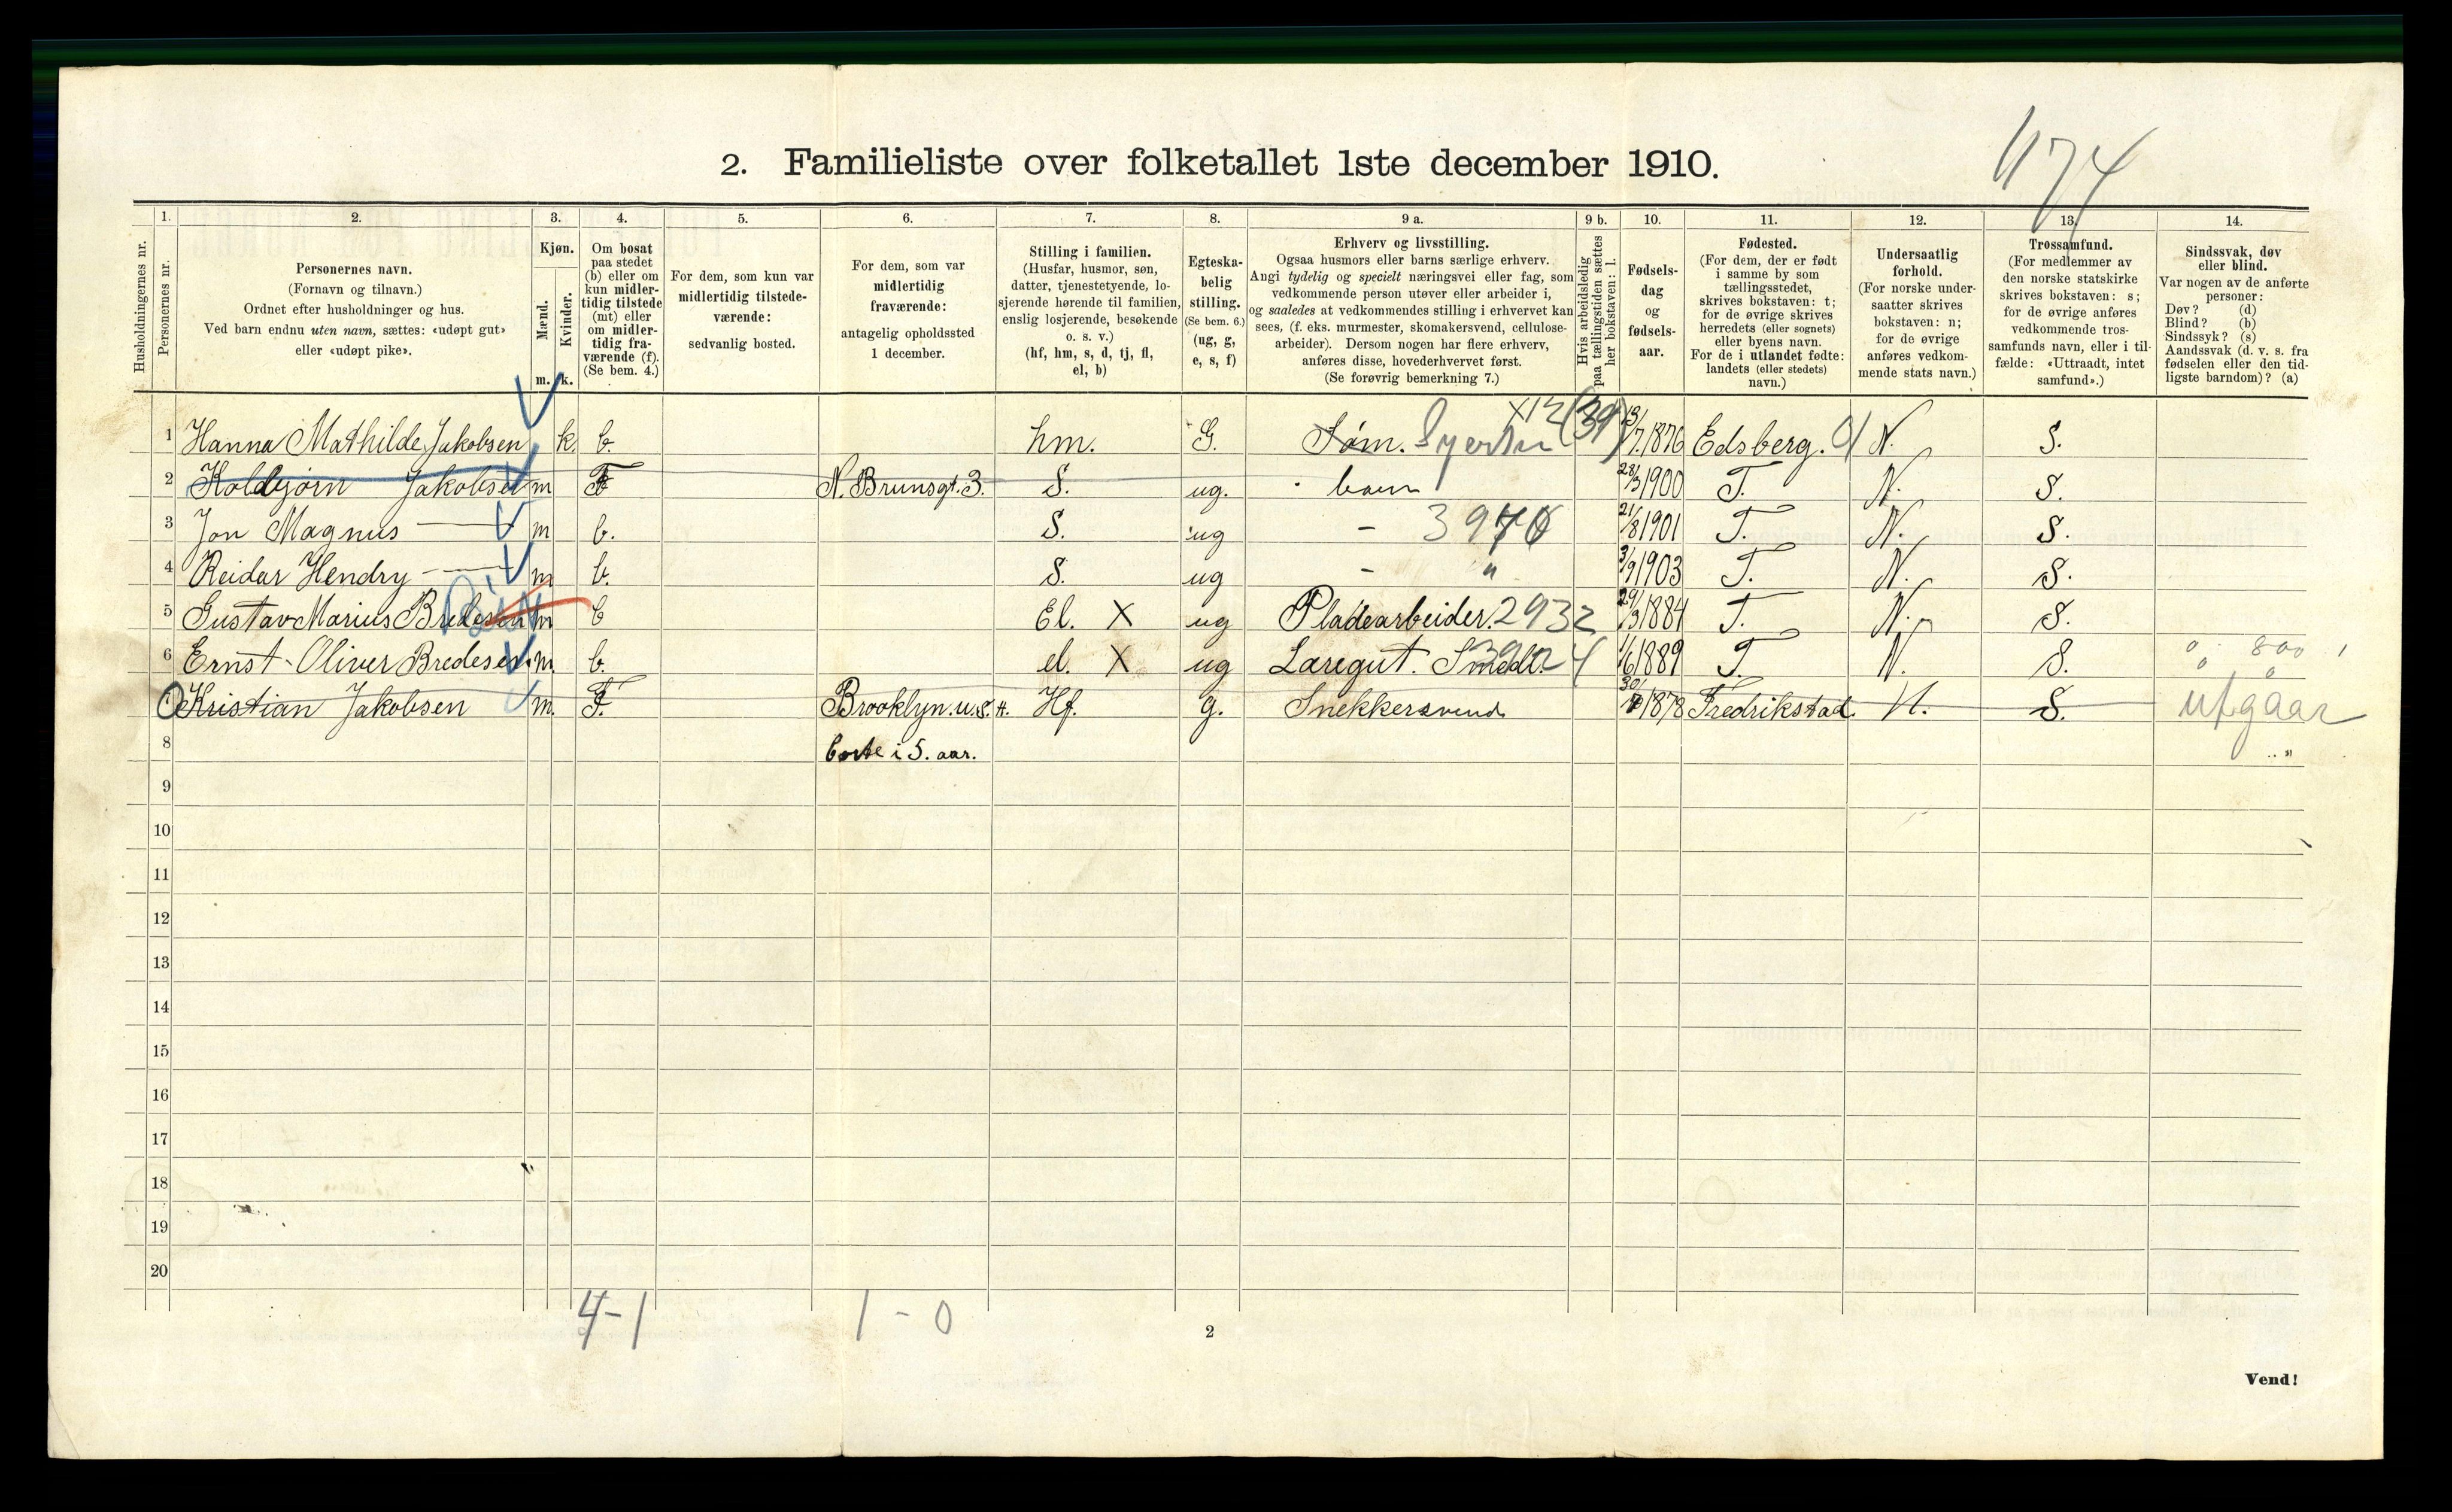 474
2. Familieliste over folketallet 1ste december 1910.
Husholdningernes nr.
1. Personernes nr.
2. Personernes navn.
(Fornavn og tilnavn.)
Ordnet efter husholdninger og hus.
Ved barn endnu uten navn, sættes: «udøpt gut»
eller «udøpt pike».
3. Kjøn.
Mænd. Kvinder.
m. k.
4. Om bosat
paa stedet
(b) eller om
kun midler-
tidig tilstede
(mt) eller
om midler-
tidig fra-
værende (f).
(Se bem. 4.)
5. For dem, som kun var
midlertidig tilstede-
værende:
sedvanlig bosted.
6. For dem, som var
midlertidig
fraværende:
antagelig opholdssted
1 december.
7. Stilling i familien.
(Husfar, husmor, søn,
datter, tjenestetyende, lo-
sjerende hørende til familien,
enslig losjerende, besøkende
o. s. v.)
(hf, hm, s, d, tj, fl,
el, b)
8. Egteska-
belig
stilling.
(Se bem. 6.)
(ug, g,
e, s, f)
9 a. Erhverv og livsstilling.
Ogsaa husmors eller barns særlige erhverv.
Angi tydelig og specielt næringsvei eller fag, som
vedkommende person utøver eller arbeider i,
og saaledes at vedkommendes stilling i erhvervet kan
sees, (f. eks. murmester, skomakersvend, cellulose-
arbeider). Dersom nogen har flere erhverv,
anføres disse, hovederhvervet først.
(Se forøvrig bemerkning 7.)
9 b. Hvis arbeidsledig
paa tællingstiden sættes
her bokstaven: l.
10. Fødsels-
dag
og
fødsels-
aar.
11. Fødested.
(For dem, der er født
i samme by som
tællingsstedet,
skrives bokstaven: t;
for de øvrige skrives
herredets (eller sognets)
eller byens navn.
For de i utlandet fødte:
landets (eller stedets)
navn.)
12. Undersaatlig
forhold.
(For norske under-
saatter skrives
bokstaven: n;
for de øvrige
anføres vedkom-
mende stats navn.)
13. Trossamfund.
(For medlemmer av
den norske statskirke
skrives bokstaven: s;
for de øvrige anføres
vedkommende tros-
samfunds navn, eller i til-
fælde: «Uttraadt, intet
samfund».)
14. Sindssvak, døv
eller blind.
Var nogen av de anførte
personer:
Døv? (d)
Blind? (b)
Sindssyk? (s)
Aandssvak (d. v. s. fra
fødselen eller den tid-
ligste barndom)? (a)
1 Hanna Mathilde Jakobsen k. b. hm. G. Søm. X12 (39) 13/7 1876 Edsberg. N. S.
2 Koldbjørn Jakobsen m F N. Brunsgt. 3. S. ug. barn 28/3 1900 T. N. S.
3 Jon Magnus — m b. S. ug - 3976 21/8 1901 T. N. S.
4 Reidar Hendry — m b. S. ug - " 3/9 1903 T. N. S.
5 Gustav Marius Bredesen m b El. X ug Pladearbeider. 2932 29/3 1884 T. N. S.
6 Ernst Oliver Bredesen. m. b. el. X ug Læregut. Smedt. 1/6 1889 T. N. S. 800
Kristian Jakobsen m. F. Brooklyn. u. S. A. Hf. g. Snekkersvend 30/7 1878 Fredrikstad. N. S. utgaar
8 borte i 5. aar. "
9
10
11
12
13
14
15
16
17
18
19
20
4-1 1-0
2
Vend!